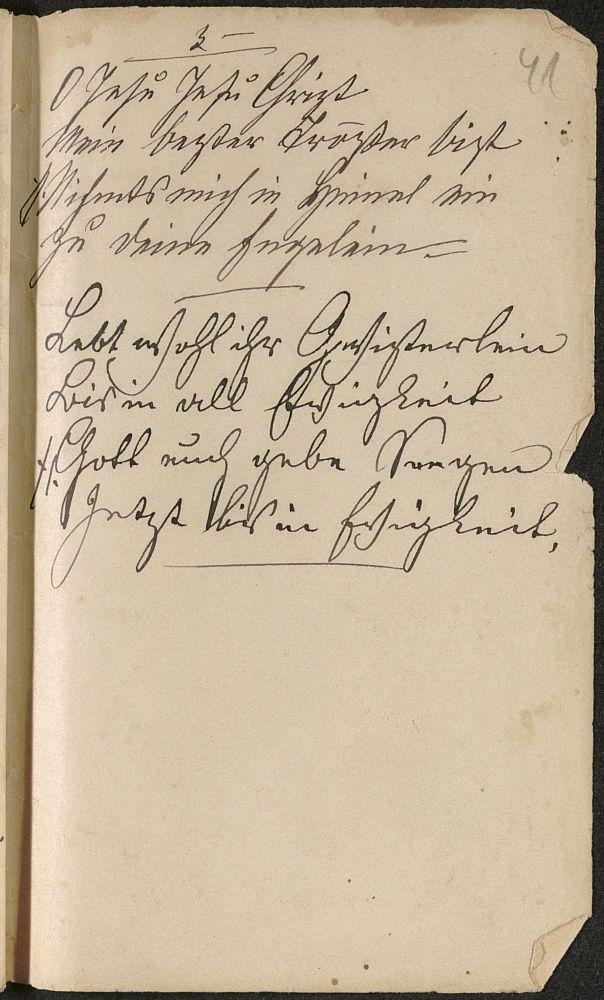 3 –
41
O Jesu Jesu Christ
Mein bester Tröster bist
nimts mich in Himel ein
zu deine Engelein –
Lebt wohl ihr Gwisterlein
bis in all Ewigkeit
Gott euch gebe Seegen
Jetzt bis in Ewigkeit,